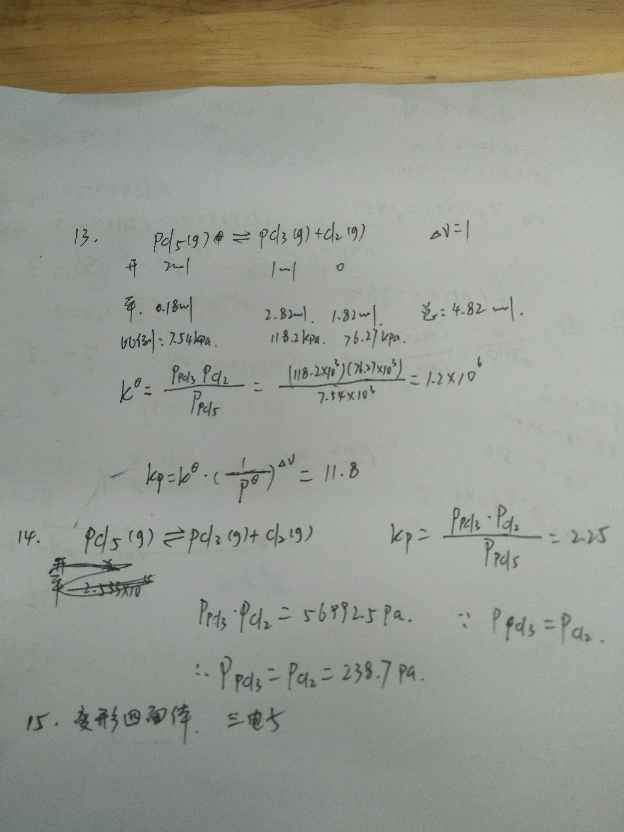 13. PCl5(g) ⇌ PCl3(g)+Cl2(g) ΔV=1
开 2ml 1ml 0
平. 0.18ml 2.82ml. 1.82ml. 总: 4.82ml.
: 7.54kpa. 118.2kpa. 76.27kpa.
K^θ = P_PCl3 P_Cl2 / P_PCl5 = (118.2×10^3)(76.27×10^3) / 7.54×10^3 = 1.2×10^6
Kp=K^θ·(1/P^θ)^ΔV = 11.8
14. PCl5(g) ⇌ PCl3(g)+Cl2(g) Kp= P_PCl3·P_Cl2 / P_PCl5 = 2.25
开
平
P_PCl3·P_Cl2 = 56992.5pa. ∵ P_PCl3=P_Cl2.
∴ P_PCl3=P_Cl2=238.7pa.
15. 变形四面体. 三电